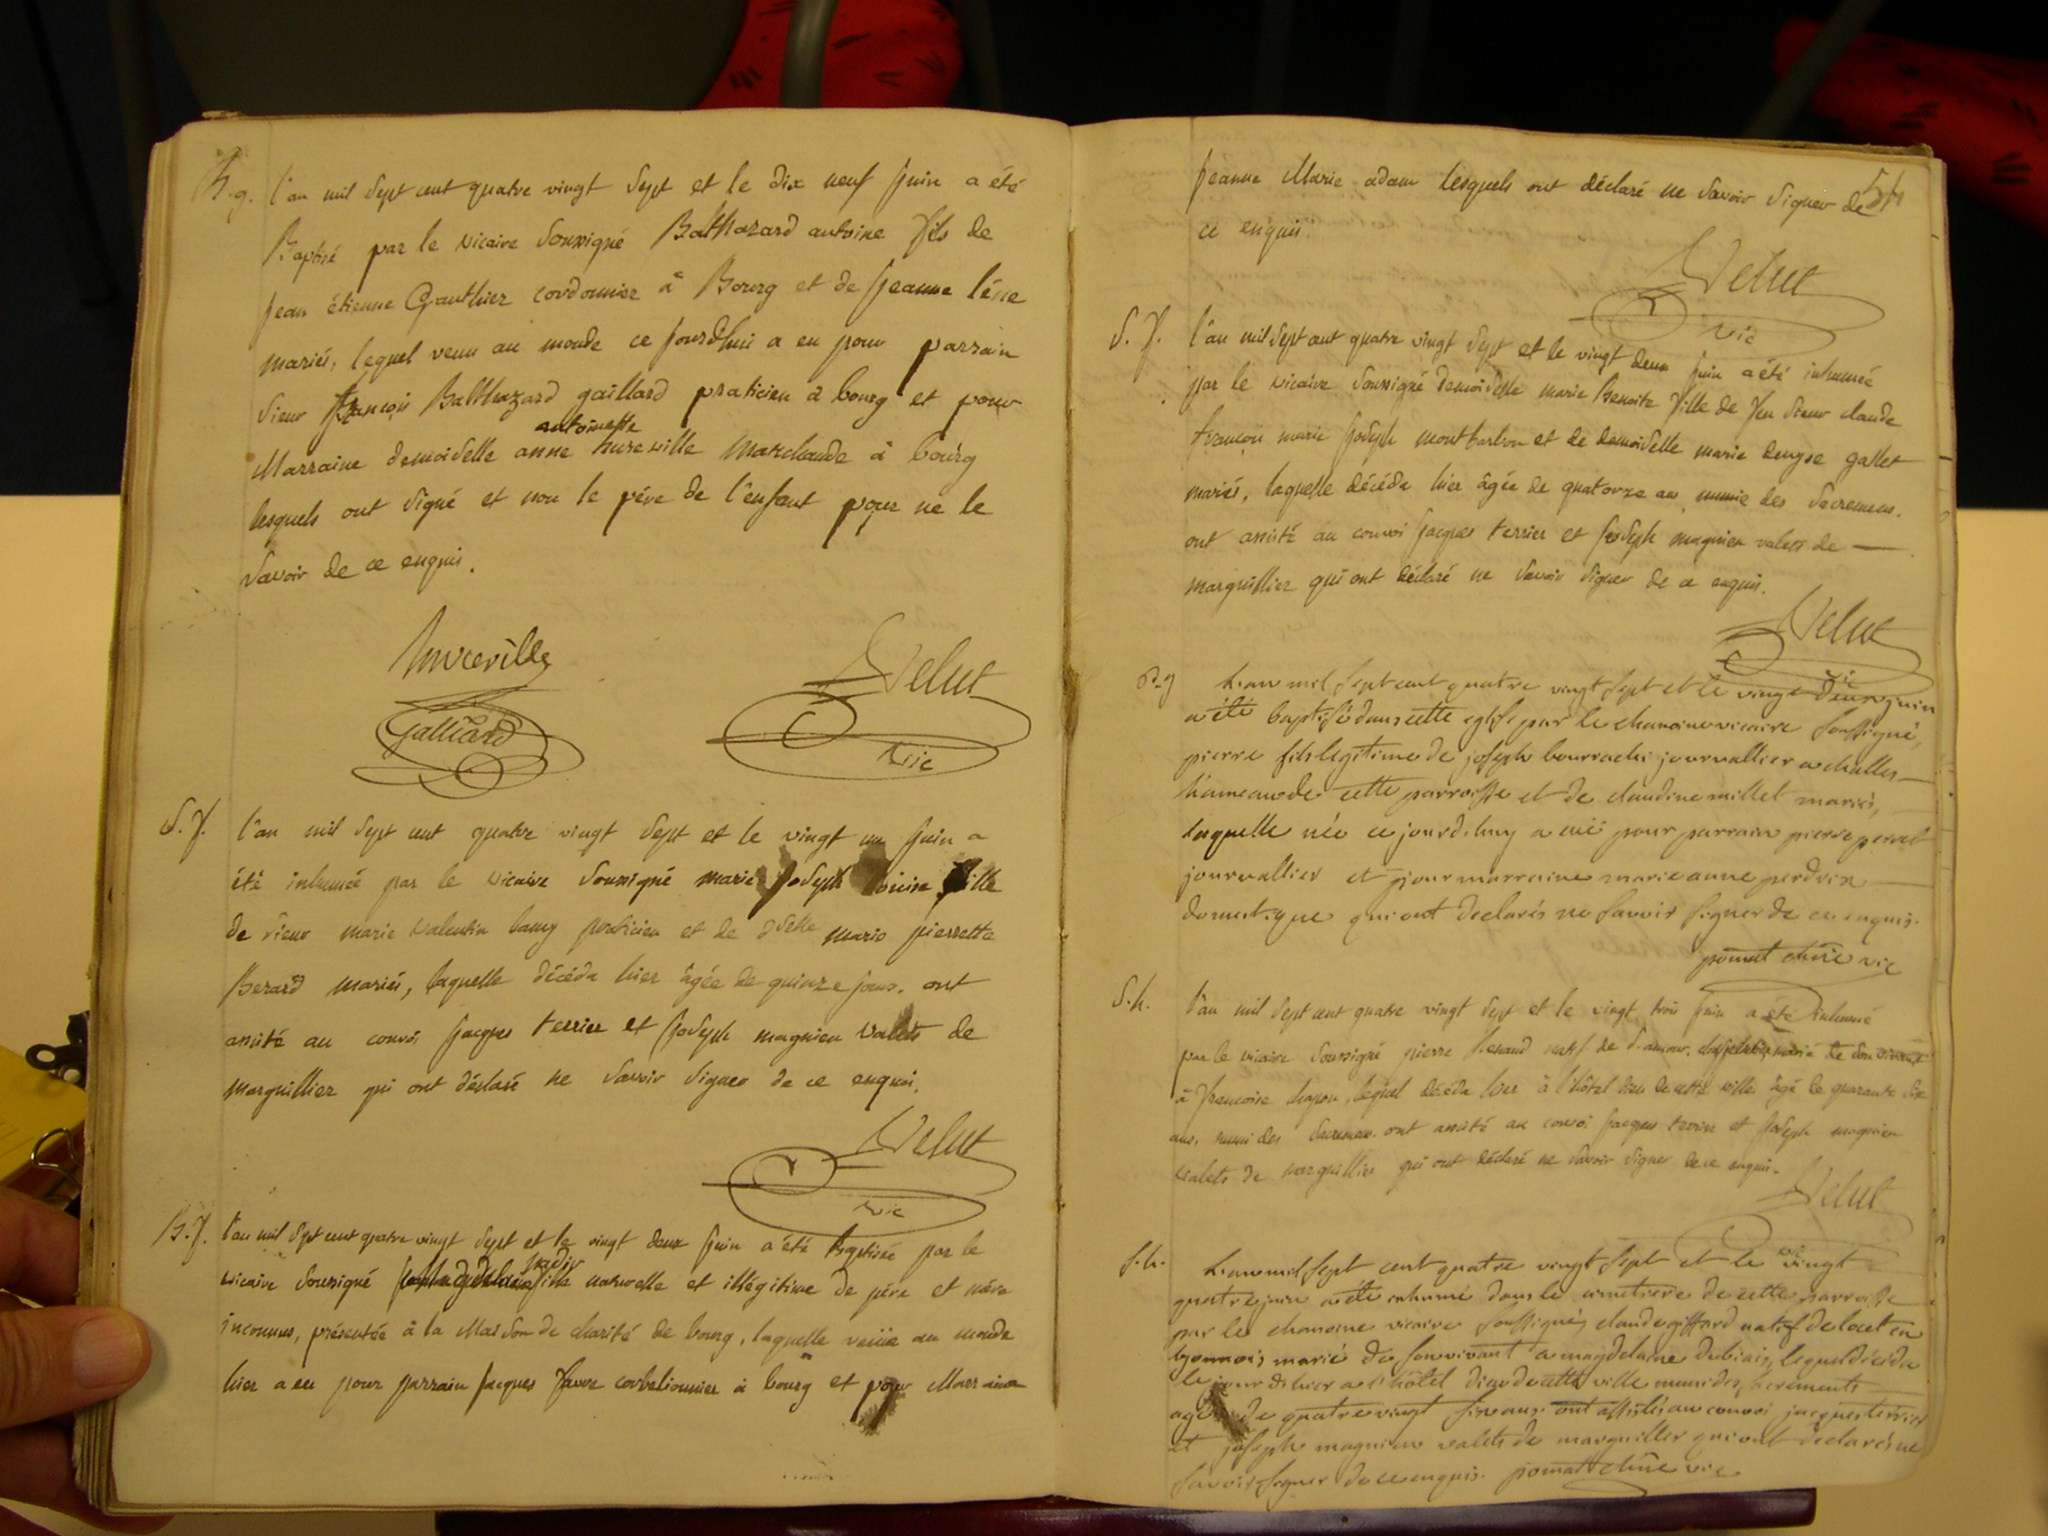 B.g. l'an mil sept cent quatre vingt sept et le dix neuf juin a été
Baptisé par le vicaire soussigné Balthazard antoine fils de
jean étienne Gauthier cordonnier à Bourg et de jeanne
mariés, lequel venu au monde ce jourd'hui a eu pour parrain
sieur françois Balthazard gaillard praticien à bourg et pour
antoinette
Marraine demoiselle anne hureville Marchande à bourg
lesquels ont signé et non le père de l'enfant pour ne le
savoir de ce enquis.
hureville
Velut
Galliard
vic
S. f. l'an mil sept cent quatre vingt sept et le vingt un juin a
été inhumée par le vicaire soussigné marie joseph fille
de sieur marie valentin praticien et de marie pierrette
Berard mariés, laquelle décéda hier âgée de quinze jours. ont
assisté au convoi jacques terrier et joseph magnien valets de
marguillier qui ont déclaré ne savoir signer de ce enquis.
Velut
vic
B. f. l'an mil sept cent quatre vingt sept et le vingt deux juin a été baptisée par le
vicaire soussigné fille naturelle et illégitime de père et mère
inconnus, présentée à la Maison de charité de bourg, laquelle venüe au monde
hier a eu pour parrain jacques favre à bourg et pour Marraine
54
jeanne Marie adam lesquels ont déclaré ne savoir signer de
ce enquis.
Velut
vic
S. f. l'an mil sept cent quatre vingt sept et le vingt deux juin a été inhumée
par le vicaire soussigné demoiselle marie benoite fille de feu sieur claude
françois marie joseph montbarbon et de demoiselle marie denyse gallet
mariés, laquelle décéda hier âgée de quatorze ans, munie des sacremens.
ont assisté au convoi jacques terrier et joseph magnien valets de
marguillier qui ont déclaré ne savoir signer de ce enquis.
Velut
vic
B.g L'an mil sept cent quatre vingt sept et le vingt deux juin
a été baptisé dans cette eglise par le chanoine vicaire soussigné,
pierre fils legitime de joseph journallier a challes
hameau de cette parroisse et de claudine millet mariés,
laquelle née ce jourd'huy a eü pour parrain pierre
journallier et pour marraine marie anne perdrix
domestique qui ont declarés ne savoir signer de ce enquis.
chne vic
S.h. l'an mil sept cent quatre vingt sept et le vingt trois juin a été inhumé
par le vicaire soussigné pierre natif de marié de son vivant
à françoise chapon, lequel décéda hier à l'hôtel dieu de cette ville âgé de quarante six
ans, muni des sacremens. ont assisté au convoi jacques terrier et joseph magnien
valets de marguillier qui ont déclaré ne savoir signer de ce enquis.
Velut
vic
S.h. L'an mil sept cent quatre vingt sept et le vingt
quatre juin a été inhumé dans le cimetiere de cette parroisse
par le chanoine vicaire soussigné, claude giffard natif de en
lyonnois marié de son vivant a magdelaine lequel décéda
le jour d'hier a l'hôtel dieu de cette ville muni des sacrements
agé de quatre vingt six ans ont assistés au convoi jacques terrier
et joseph magnien valets de marguiller qui ont declarés ne
savoir signer de ce enquis. chne vic